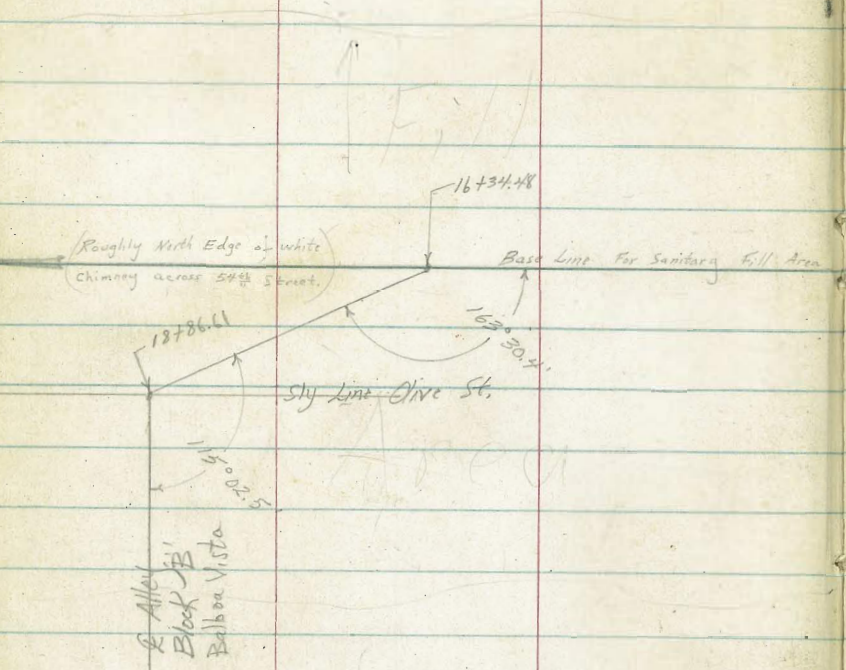 Fill
16+34.48
(Roughly North Edge of white
Chimney across 54th Street.)
Base Line For Sanitary Fill Area
18+86.61
163° 30.4'
Sly Line Olive St.
Area
℄ Alley
Block 'B'
Balboa Vista